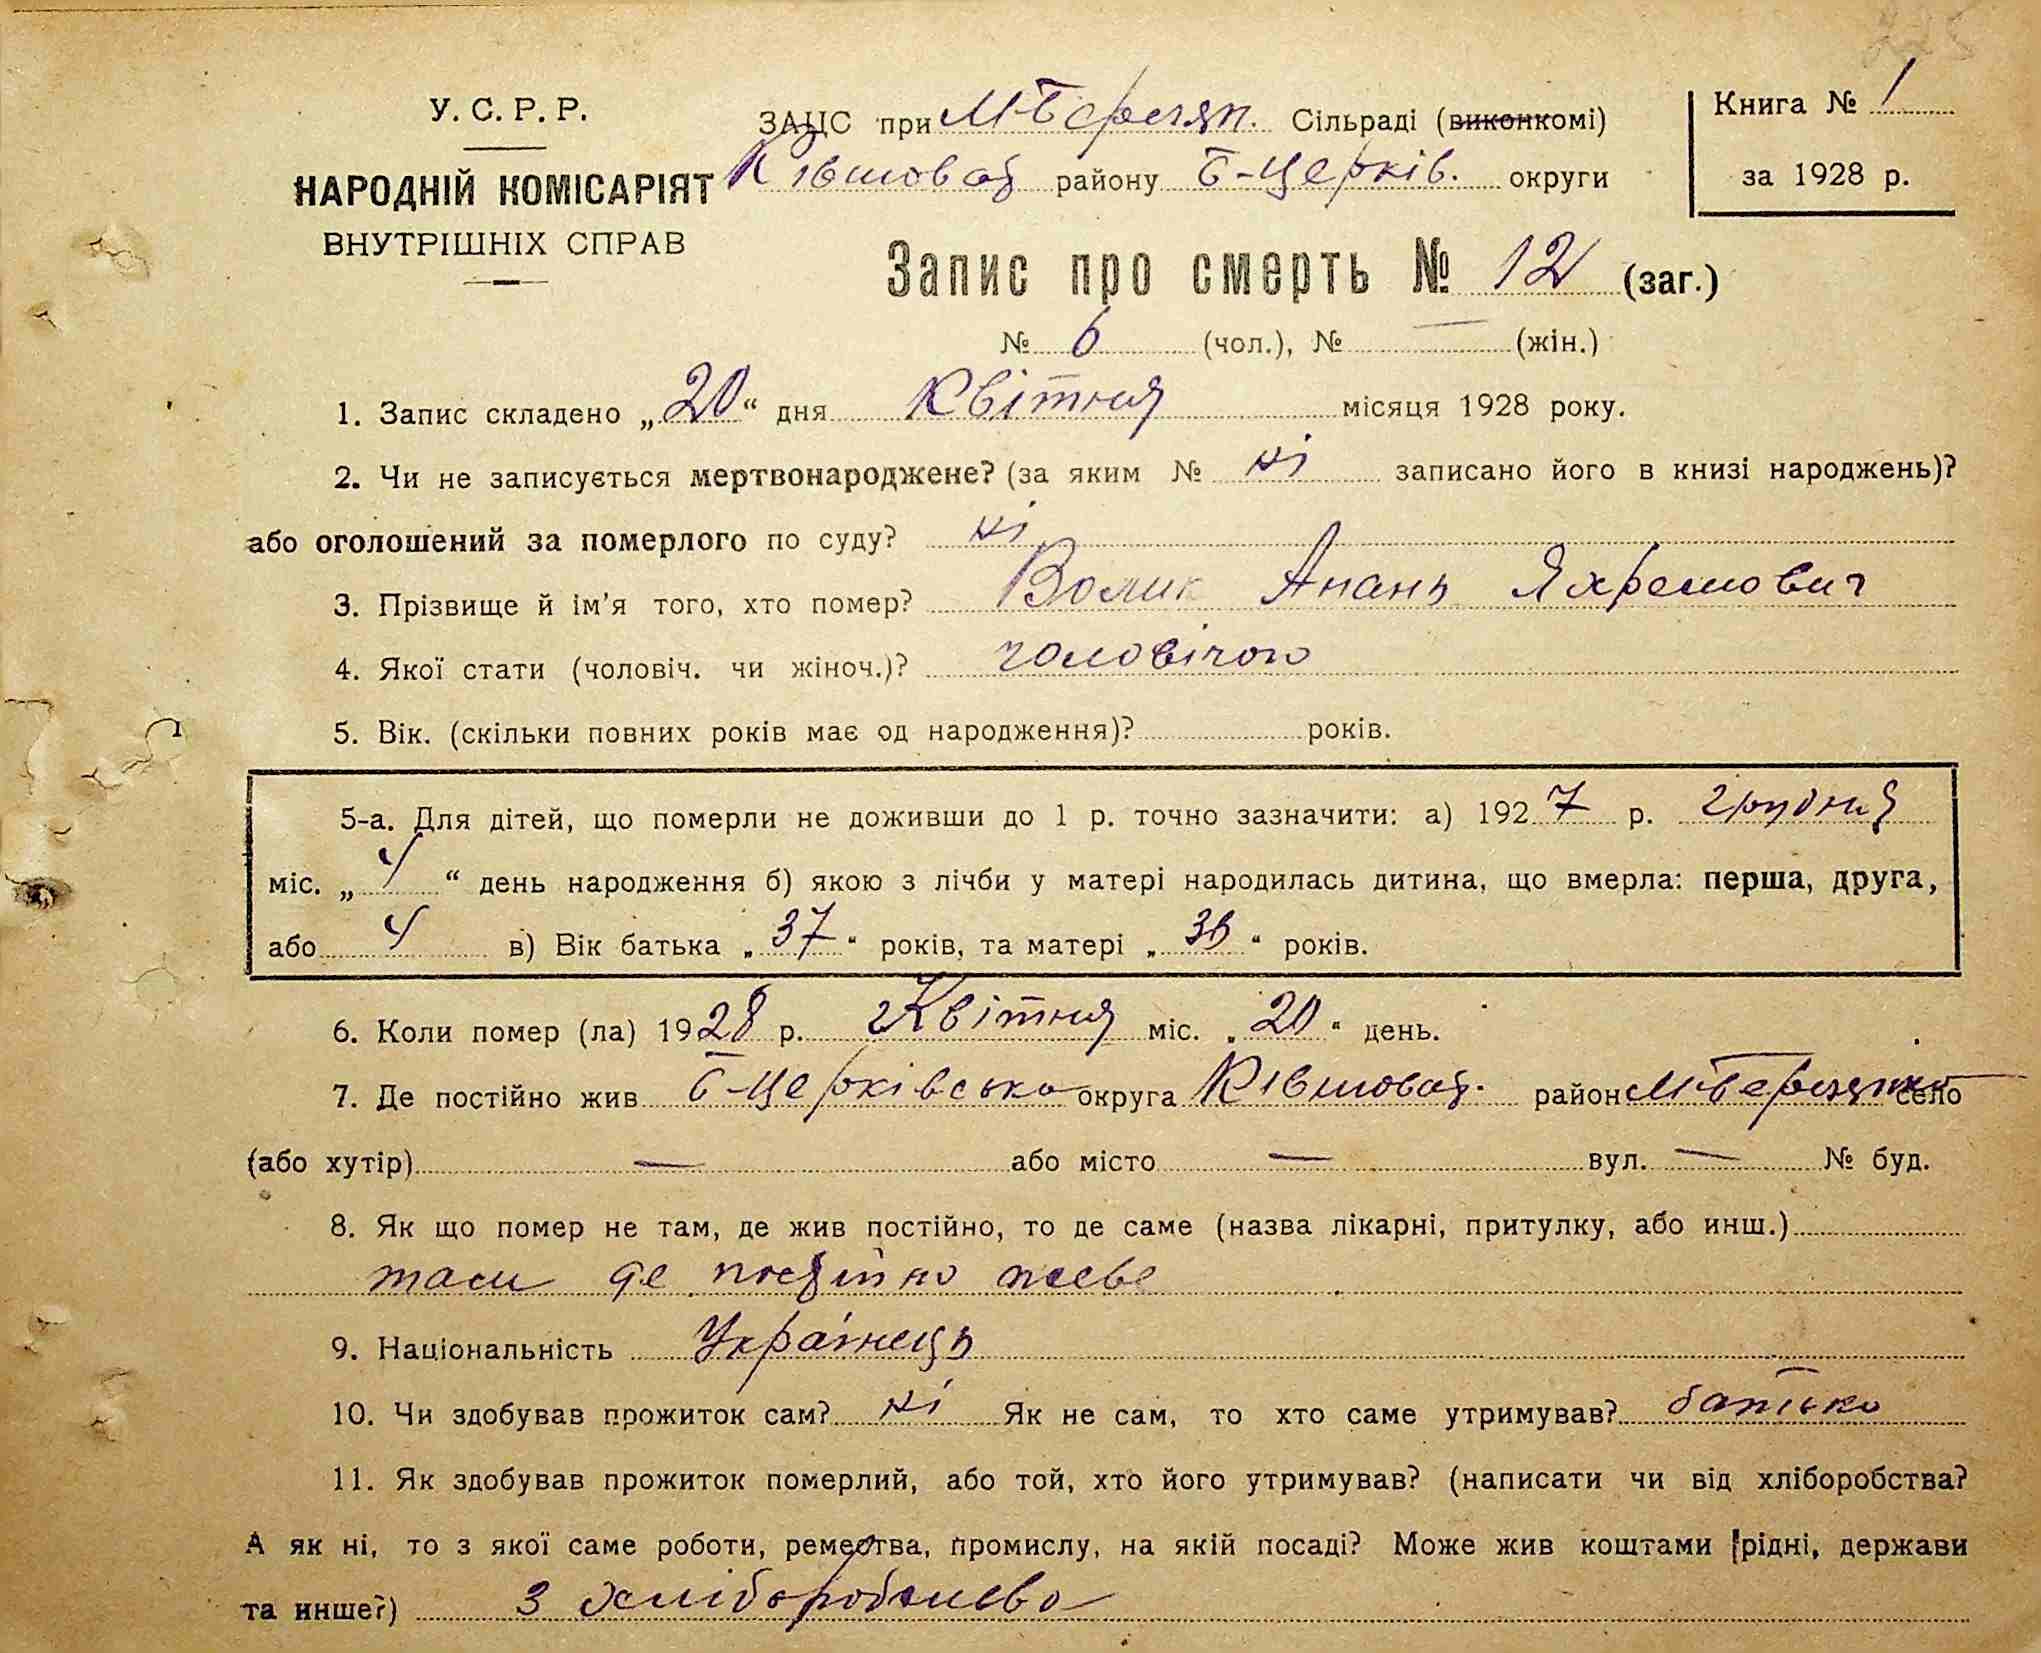 У. С. Р. Р.
НАРОДНІЙ КОМІСАРІЯТ
ВНУТРІШНІХ СПРАВ
ЗАЦС при М-Березян. Сільраді (виконкомі)
Ківшоват району Б-Церків. округи
Книга № 1
за 1928 р.
Запис про смерть № 12 (заг.)
№ 6 (чол.), № — (жін.)
1. Запис складено „20“ дня Квітня місяця 1928 року.
2. Чи не записується мертвонароджене? (за яким № ні записано його в книзі народжень)?
або оголошений за померлого по суду? ні
3. Прізвище й ім'я того, хто помер? Волик Анань Яхремович
4. Якої стати (чоловіч. чи жіноч.)? чоловічою
5. Вік. (скільки повних років має од народження)? років.
5-а. Для дітей, що померли не доживши до 1 р. точно зазначити: а) 1927 р. грудня
міс. „4“ день народження б) якою з лічби у матері народилась дитина, що вмерла: перша, друга,
або 4 в) Вік батька „37“ років, та матері „36“ років.
6. Коли помер (ла) 1928 р. Квітня міс. „20“ день.
7. Де постійно жив Б-Церківська округа Ківшоват. район село
(або хутір) — або місто — вул. — № буд.
8. Як що помер не там, де жив постійно, то де саме (назва лікарні, притулку, або инш.)
там де постійно живе
9. Національність Українець
10. Чи здобував прожиток сам? ні Як не сам, то хто саме утримував? батько
11. Як здобував прожиток померлий, або той, хто його утримував? (написати чи від хліборобства?
А як ні, то з якої саме роботи, ремества, промислу, на якій посаді? Може жив коштами рідні, держави
та инше?) з хліборобства